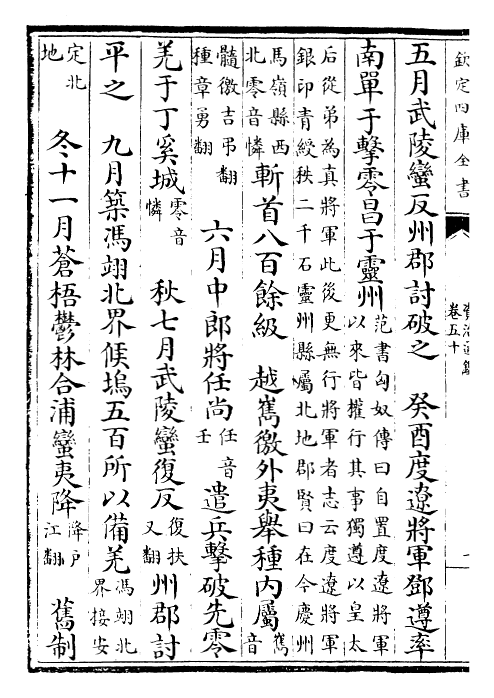 欽定四庫全書
資治通鑑
卷五十
五月武陵蠻反州郡討破之　癸酉度遼將軍鄧遵率
南單于擊零昌于靈州范書匈奴傳曰自置度遼將軍以來皆權行其事獨遵以皇太
后從弟為真將軍此後更無行將軍者志云度遼將軍銀印青綬秩二千石靈州縣屬北地郡賢曰在今慶州
馬嶺縣西北零音憐斬首八百餘級　越嶲徼外夷舉種内屬嶲音
髓徼吉弔翻種章勇翻　六月中郎將任尚任音壬遣兵擊破先零
羌于丁奚城零音憐　秋七月武陵蠻復反復扶又翻州郡討
平之　九月築馮翊北界候塢五百所以備羌馮翊北界接安
定北地　冬十一月蒼梧鬱林合浦蠻夷降降戶江翻　舊制